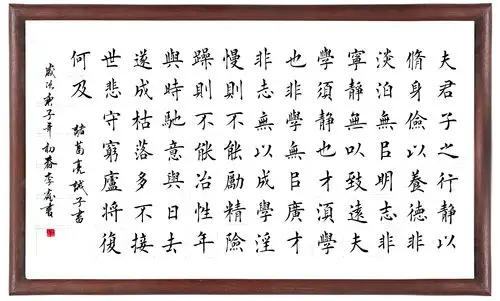 夫君子之行靜以
脩身儉以養德非
淡泊無㠯明志非
寧静無以致遠夫
學須静也才須學
也非學無㠯廣才
非志無以成學淫
慢則不能勵精險
躁則不能冶性年
與時馳意與日去
遂成枯落多不接
世悲守窮廬將復
何及
諸葛亮誡子書
歲次庚子年初春李書